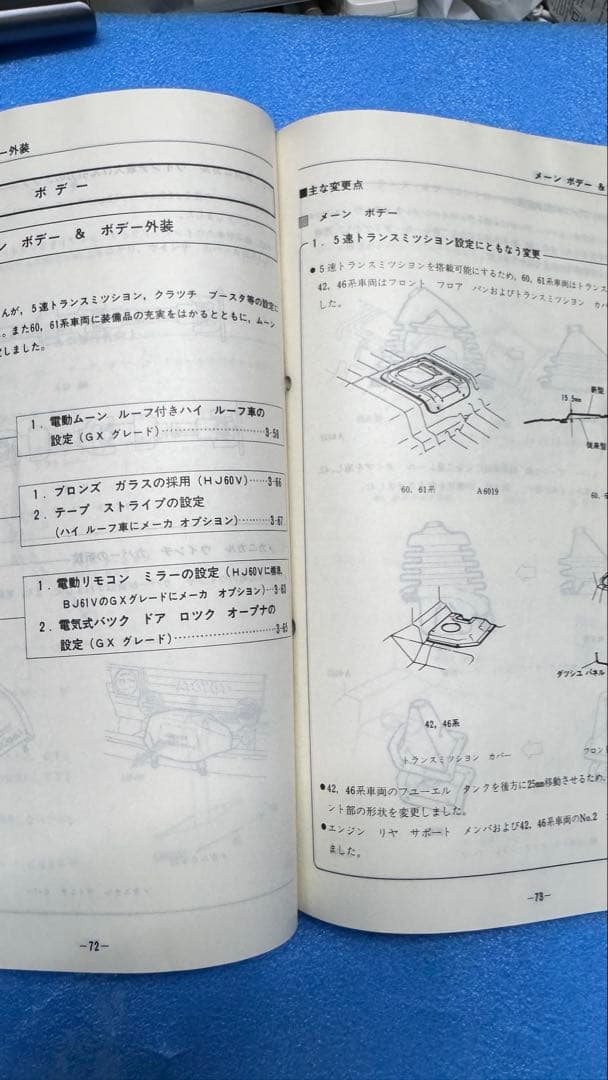 ー外装
ボデー
ン ボデー & ボデー外装
んが，5速トランスミツシヨン，クラツチ ブースタ等の設定に
。また60，61系車両に装備品の充実をはかるとともに，ムーン
しました。
1．電動ムーン ルーフ付きハイ ルーフ車の
設定（GX グレード）…………………3-56
1．ブロンズ ガラスの採用（HJ60V）……3-66
2．テープ ストライプの設定
（ハイ ルーフ車にメーカ オプション）…3-67
1．電動リモコン ミラーの設定（HJ60Vに標準，
BJ61VのGXグレードにメーカ オプション）…3-63
2．電気式バツク ドア ロツク オープナの
設定（GX グレード）…………………3-65
－72－
メーン ボデー &
■主な変更点
メーン ボデー
1．5速トランスミツシヨン設定にともなう変更
●5速トランスミツシヨンを搭載可能にするため，60，61系車両はトランス
42，46系車両はフロント フロア パンおよびトランスミツシヨン カバ
した。
新型
15.5mm
従来型
60，61系 A6019
60，6
ダツシユ パネル
42，46系
トランスミツシヨン カバー
フロン
●42，46系車両のフユーエル タンクを後方に25mm移動させるため，
ント部の形状を変更しました。
●エンジン リヤ サポート メンバおよび42，46系車両のNo.2
ました。
－73－